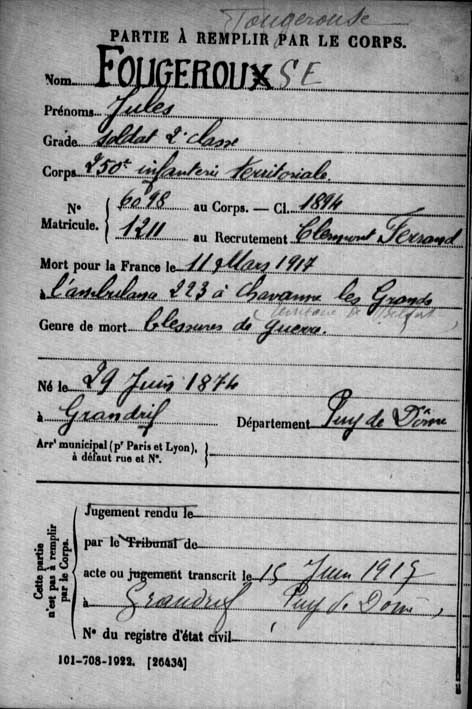 Fougerouse
PARTIE À REMPLIR PAR LE CORPS.
Nom FOUGEROUXSE
Prénoms Jules
Grade soldat 2e classe
Corps 250e infanterie territoriale
N° Matricule. { 6098 au Corps. — Cl. 1894
1211 au Recrutement Clermont Ferrand
Mort pour la France le 11 Mars 1917
à l'ambulance 223 à Chavanne les Grands
(Territoire de Belfort)
Genre de mort Blessures de guerre.
Né le 29 Juin 1874
à Grandrif Département Puy de Dôme
Arrt municipal (pr Paris et Lyon),
à défaut rue et N°. }
Cette partie n'est pas à remplir par le Corps.
Jugement rendu le
par le Tribunal de
acte ou jugement transcrit le 15 Juin 1917
à Grandrif Puy de Dôme
N° du registre d'état civil
101-708-1922. [26434]